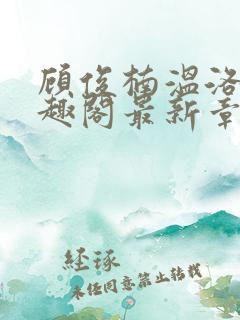 顾俊楠温洛
趣阁最新章
经琢
未经同意禁止转载